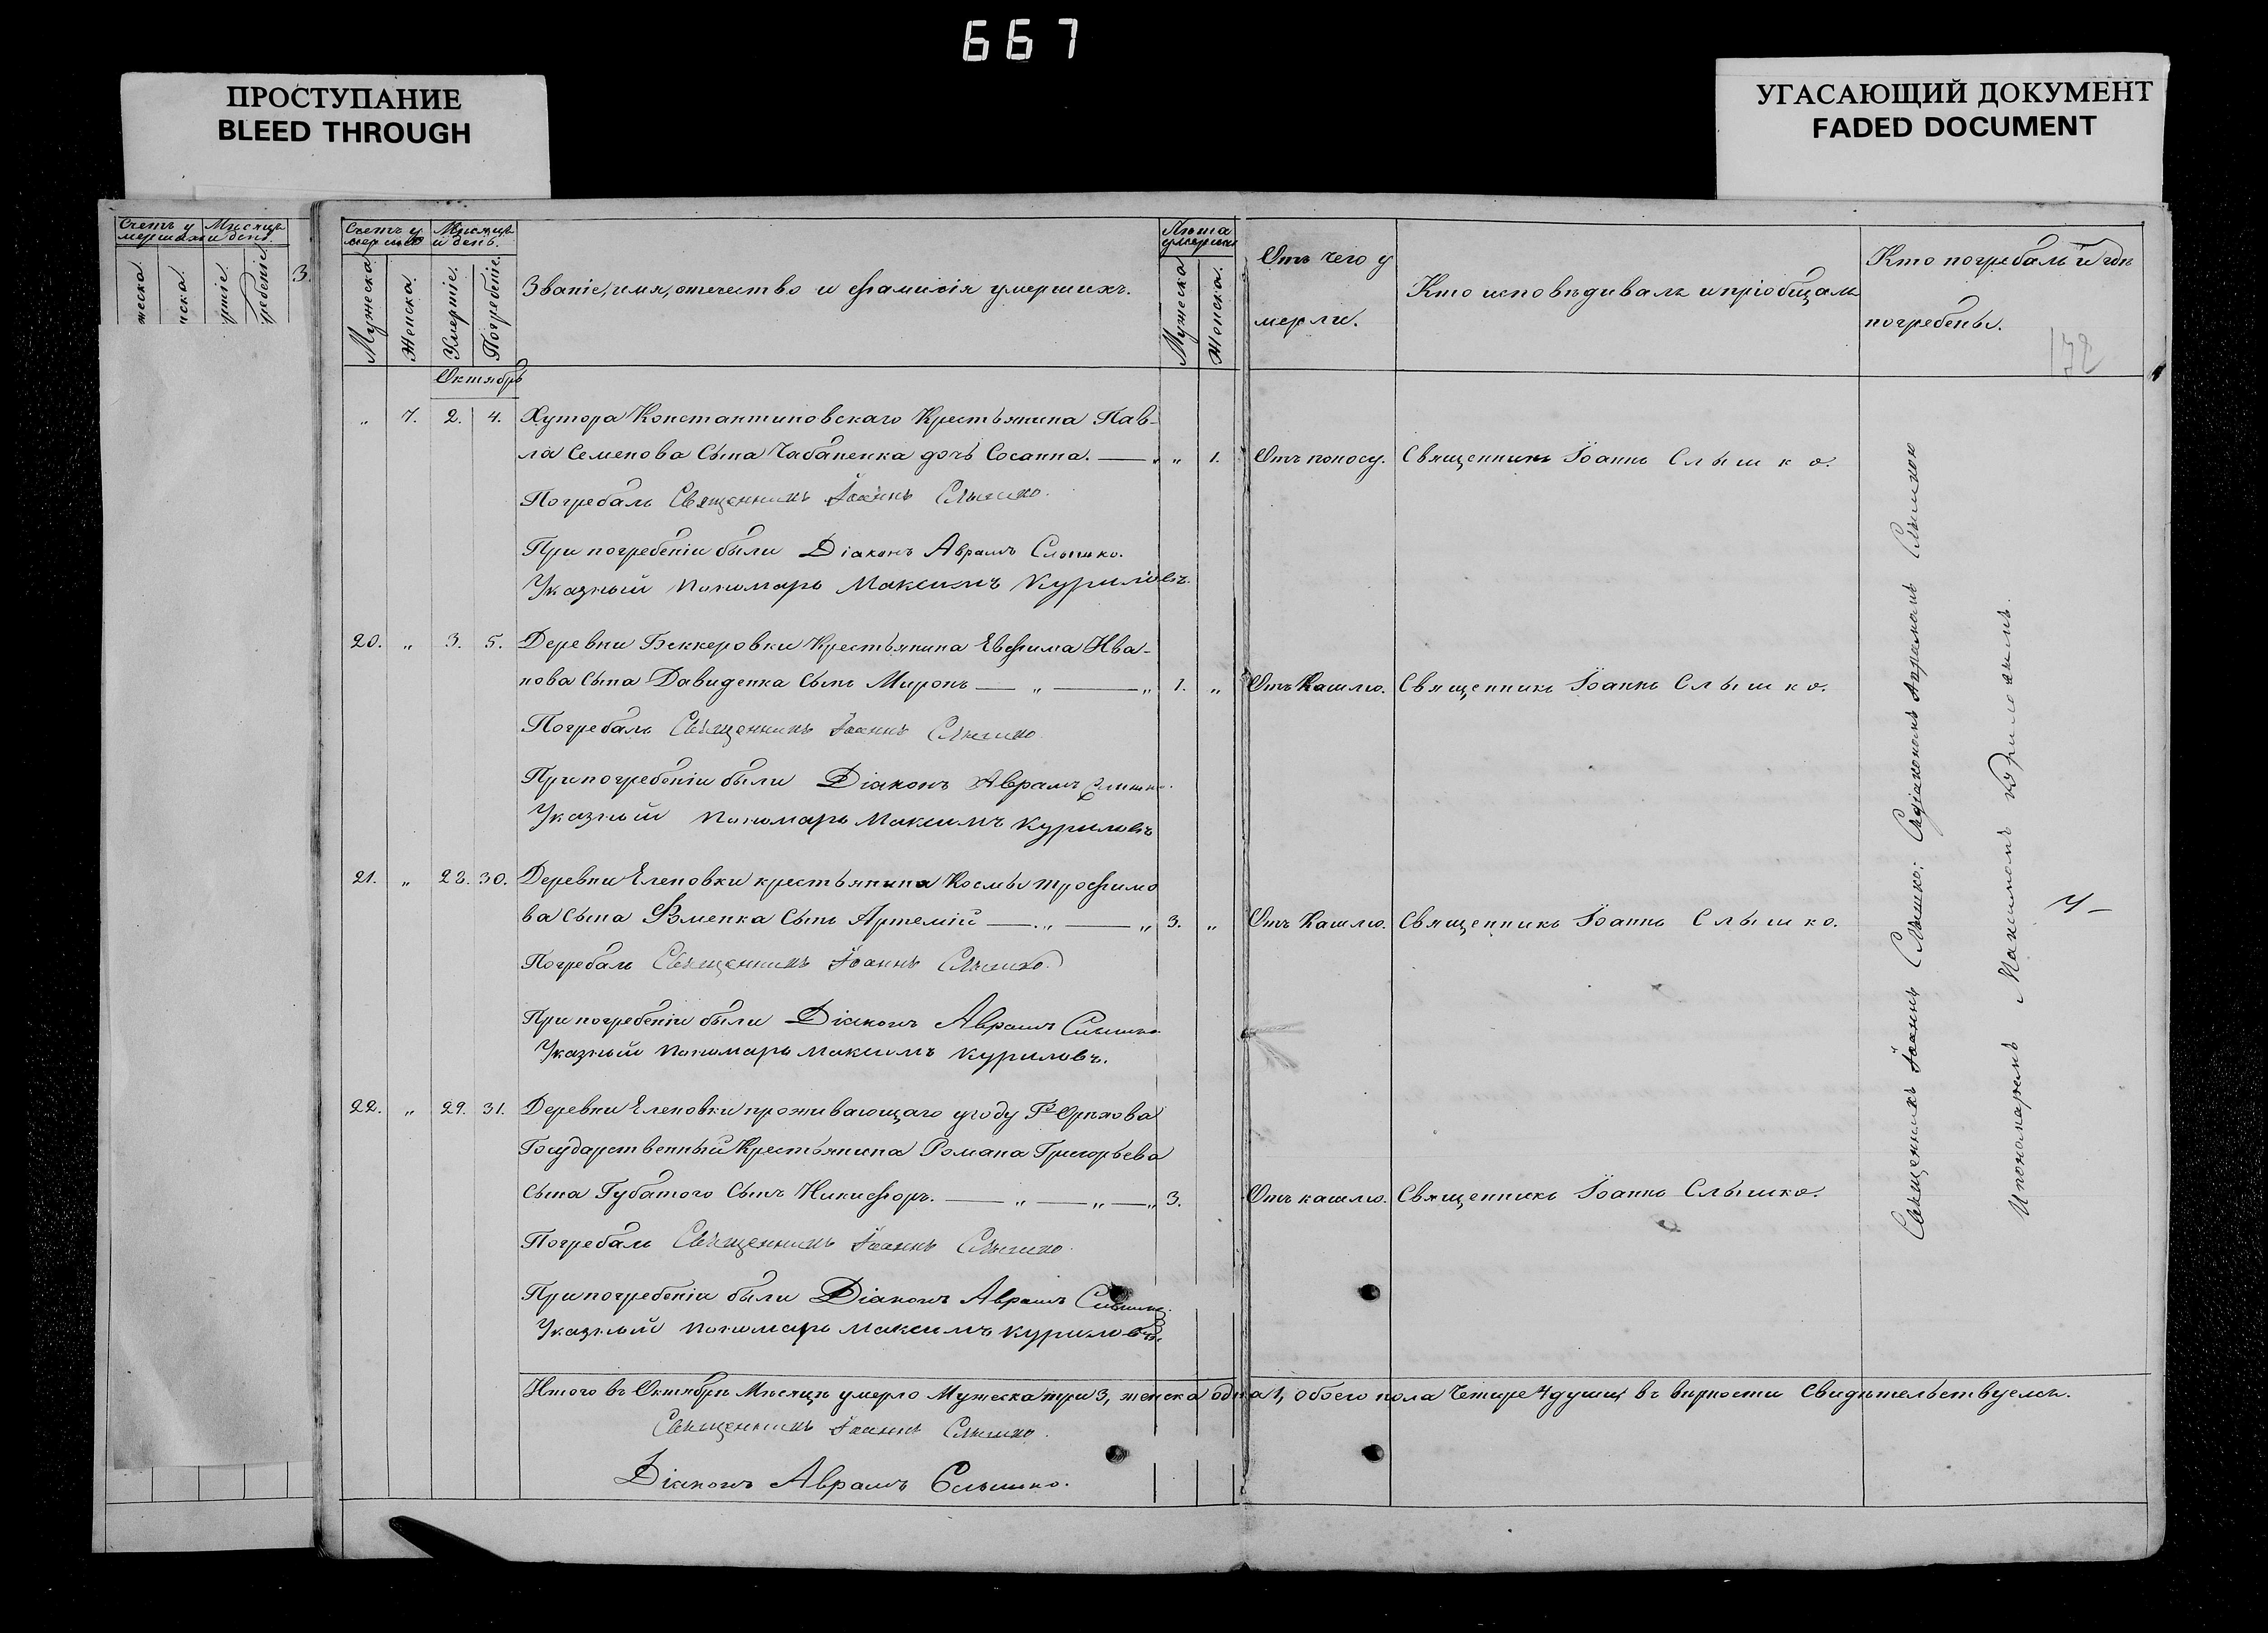 667
ПРОСТУПАНИЕ
BLEED THROUGH
УГАСАЮЩИЙ ДОКУМЕНТ
FADED DOCUMENT
Счетъ у Мѣсяцъ
мершихъ и день.
Счетъ у Мѣсяцъ
мершихъ и день.
Мужеска.
Женска.
Умертіе.
Погребеніе.
Званіе, имя, отечество и фамилія умершихъ.
Лѣта
умершихъ
Мужеска
Женска.
Отъ чего у
мерли.
Кто исповѣдивалъ и пріобщалъ
Кто погребалъ и гдѣ
погребены.
172
Октябрь
„ 7. 2. 4. Хутора Константиновскаго Крестьянина Пав-
ла Семенова Сына Чабаненка дочь Сосанна. — „ „ 1. Отъ поносу. Священникъ Іоаннъ Слышко.
Погребалъ Священникъ Іоаннъ Слышко.
При погребеніи были Діаконъ Аврамъ Слышко.
Указный пономарь Максимъ Куриловъ.
20. „ 3. 5. Деревни Беккеровки Крестьянина Евфима Ива-
нова Сына Давиденка Сынъ Миронъ — „ — „ 1. „ Отъ Кашлю. Священникъ Іоаннъ Слышко.
Погребалъ Священникъ Іоаннъ Слышко.
При погребеніи были Діаконъ Аврамъ Слышко.
Указный пономарь Максимъ Куриловъ
21. „ 28. 30. Деревни Еленовки крестьянина Космы Трофимо
ва Сына Фоменка Сынъ Артемій — „ — „ 3. „ Отъ Кашлю. Священникъ Іоаннъ Слышко.
Погребалъ Священникъ Іоаннъ Слышко.
При погребеніи были Діаконъ Аврамъ Слышко
Указный пономарь Максимъ Куриловъ.
22. „ 29. 31. Деревни Еленовки проживающаго угоду Гᵉ Орѣхова
Государственный Крестьянина Романа Григорьева
Сына Губатого Сынъ Никифоръ. — „ — „ — „ 3. Отъ кашлю. Священникъ Іоаннъ Слышко.
Погребалъ Священникъ Іоаннъ Слышко.
При погребеніи были Діаконъ Аврамъ Слышко.
Указный пономарь Максимъ Куриловъ.
Священникъ Іоаннъ Слышко: Содіакономъ Аврамомъ Слышкою
Ипономаремъ Максимомъ Куриловымъ.
Итого въ Октябрѣ Мѣсяцѣ умерло Мужеска три 3, женска одна 1, обоего пола Четире 4 души, въ вѣрности Свидѣтельствуемъ.
Священникъ Іоаннъ Слышко.
Діаконъ Аврамъ Слышко.